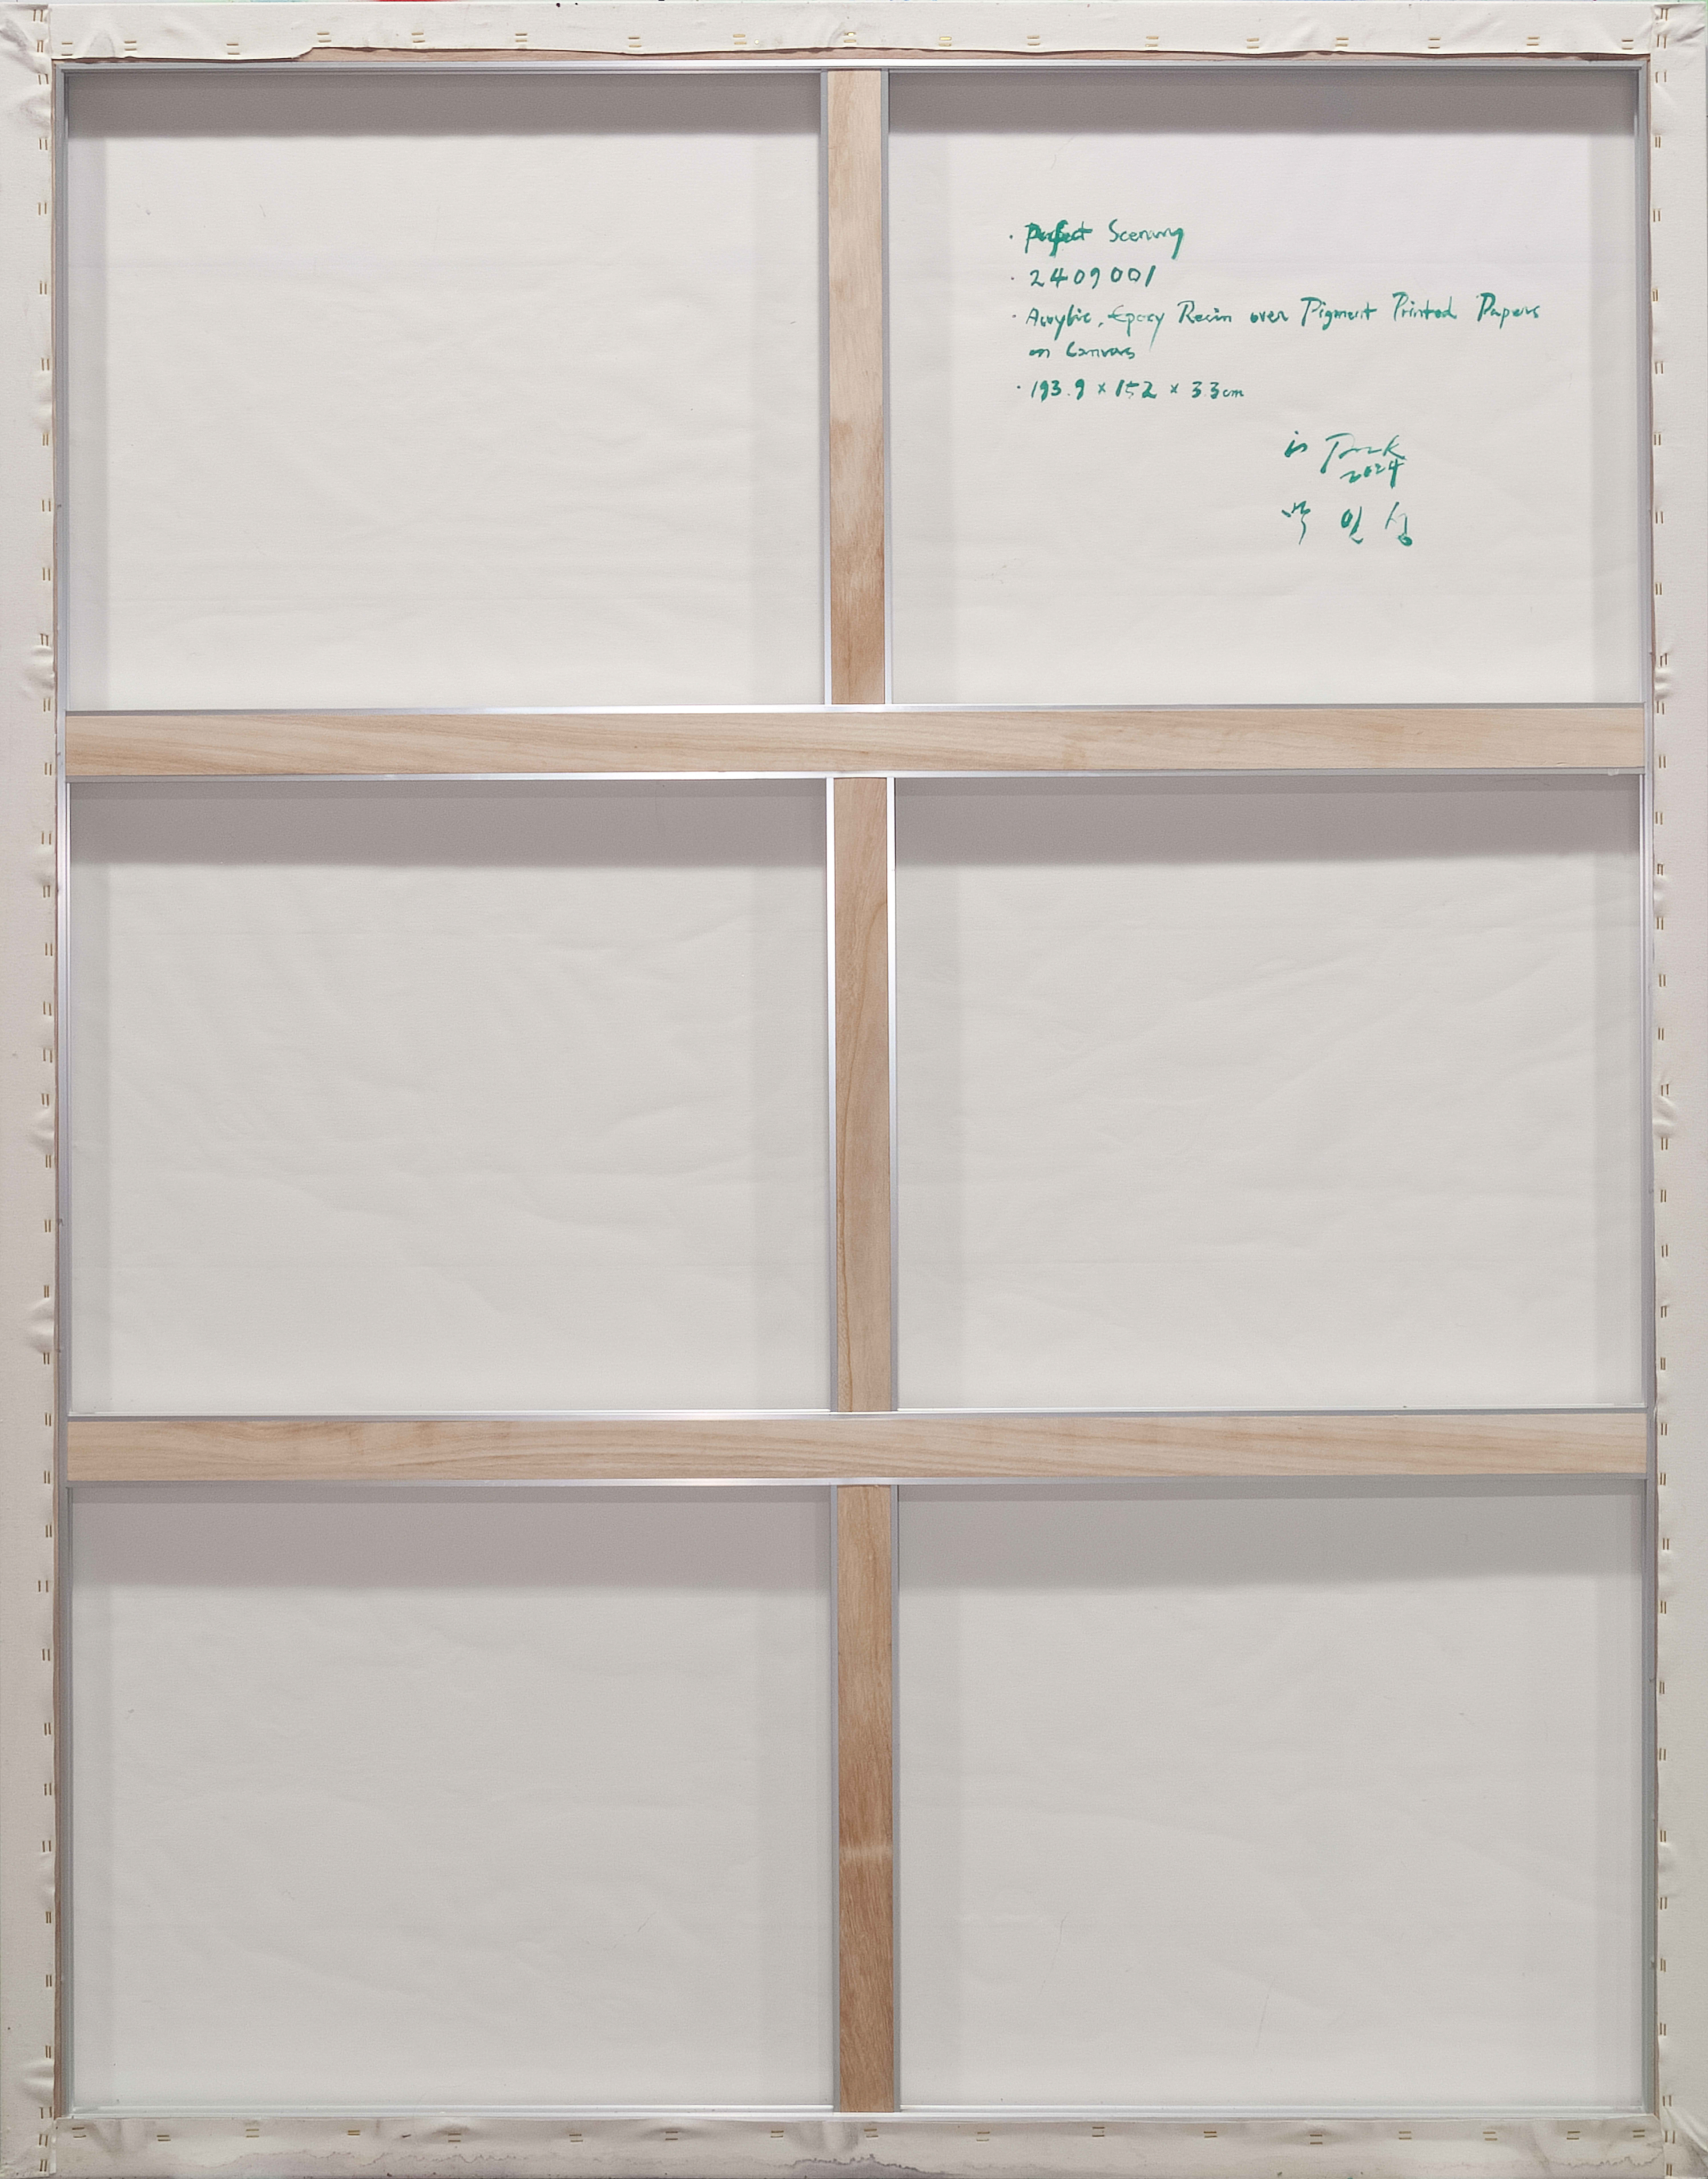 · Perfect Scenery
· 2409001
· Acrylic, Epoxy Resin over Pigment Printed Papers
on Canvas
· 193.9 × 152 × 3.3cm
is Park
2024
박 인 성